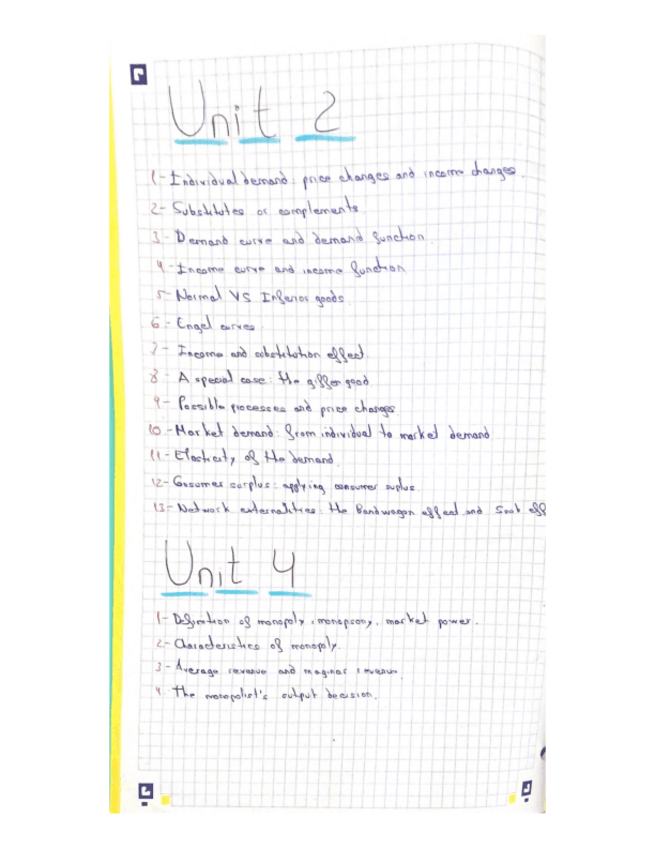 Unit 2
1- Individual demand: price changes and income changes.
2- Substitutes or complements.
3- Demand curve and demand function.
4- Income curve and income function
5- Normal VS Inferior goods.
6- Engel curves
7- Income and substitution effect.
8- A special case: the giffen good
9- Possible processes and price changes
10- Market demand: from individual to market demand
11- Elasticity of the demand.
12- Consumer surplus: applying consumer suplus.
13- Network externalities: the Bandwagon effect and Snob eff
Unit 4
1- Definition of monopoly, monopsony, market power.
2- Characteristics of monopoly.
3- Average revenue and marginal revenue.
4. The monopolist's output decision.